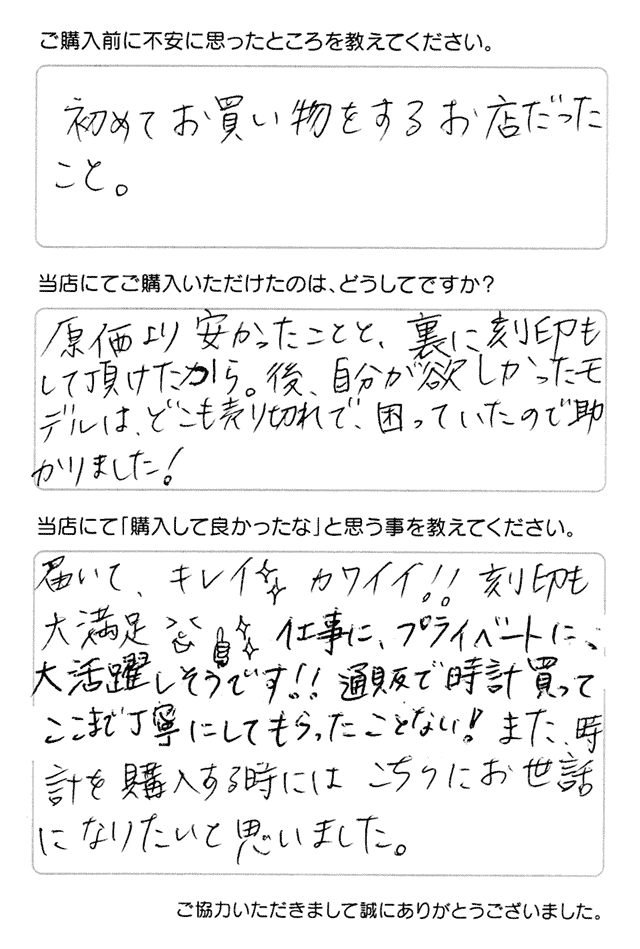 ご購入前に不安に思ったところを教えてください。
初めてお買い物をするお店だった
こと。
当店にてご購入いただけたのは、どうしてですか？
原価より安かったことと、裏に刻印も
して頂けたから。後、自分が欲しかったモ
デルは、どこも売り切れで、困っていたので助
かりました！
当店にて「購入して良かったな」と思う事を教えてください。
届いて、キレイ カワイイ!! 刻印も
大満足 仕事に、プライベートに、
大活躍しそうです!! 通販で時計買って
ここまで丁寧にしてもらったことない！また、時
計を購入する時には こちらにお世話
になりたいと思いました。
ご協力いただきまして誠にありがとうございました。